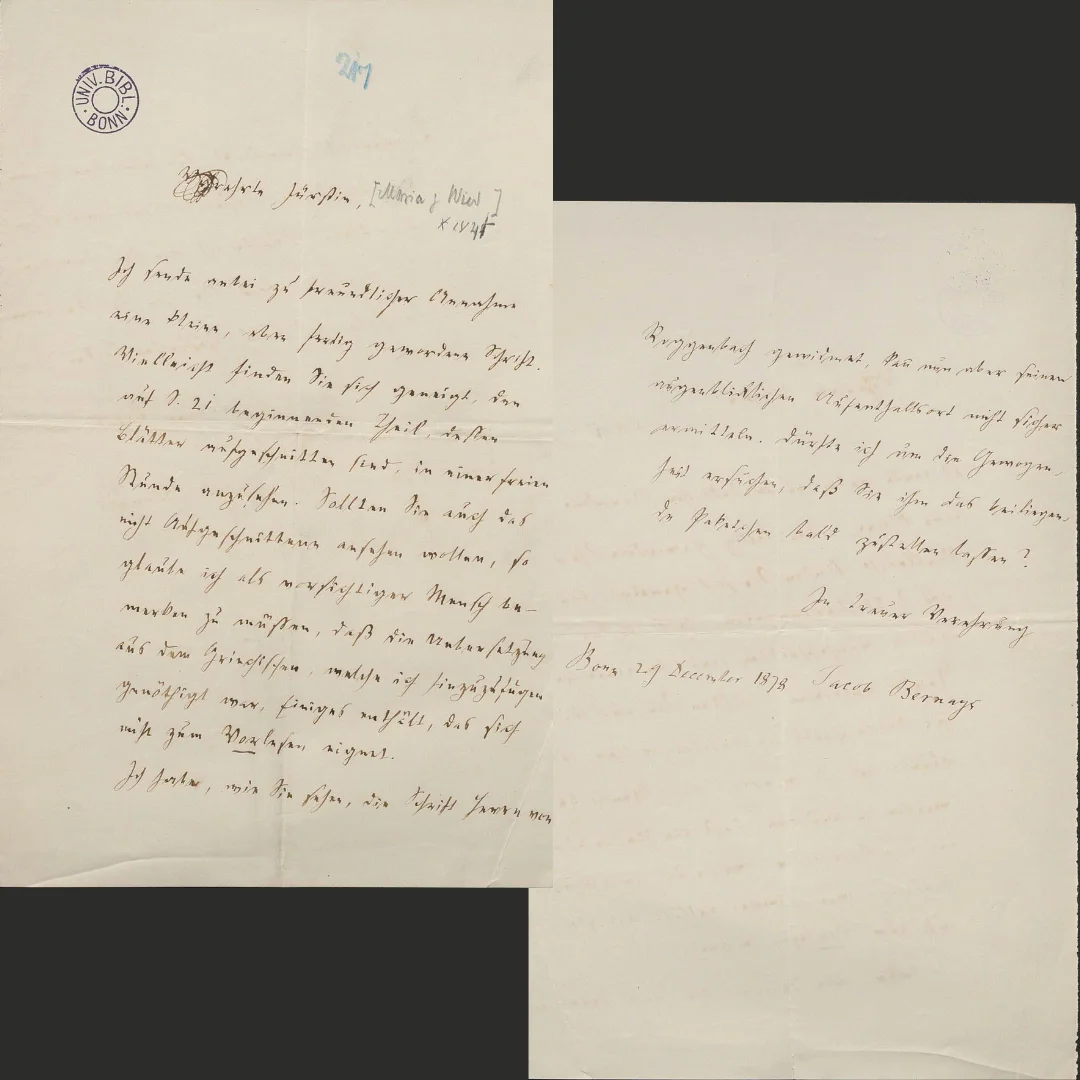 UNIV. BIBL. BONN
217
Verehrte Fürstin, [Maria z Wied]
Ich sende anbei zu freundlicher Annahme
eine kleine, eben fertig gewordene Schrift.
Vielleicht finden Sie sich geneigt, den
auf S. 21 beginnenden Theil, dessen
Blätter aufgeschnitten sind, in einer freien
Stunde anzusehen. Sollten Sie auch das
nicht Aufgeschnittene ansehen wollen, so
glaube ich als vorsichtiger Mensch be-
merken zu müssen, daß die Uebersetzung
aus dem Griechischen, welche ich hinzuzufügen
genöthigt war, Einiges enthält, das sich
nicht zum Vorlesen eignet.
Ich habe, wie Sie sehen, die Schrift Herrn von
Roggenbach gewidmet, kan nun aber seinen
augenblicklichen Aufenthaltsort nicht sicher
ermitteln. Dürfte ich um die Gewogen-
heit ersuchen, daß Sie ihm das beiliegen-
de Paketchen bald zustellen lassen?
In treuer Verehrung
Bonn 29 December 1878 Jacob Bernays